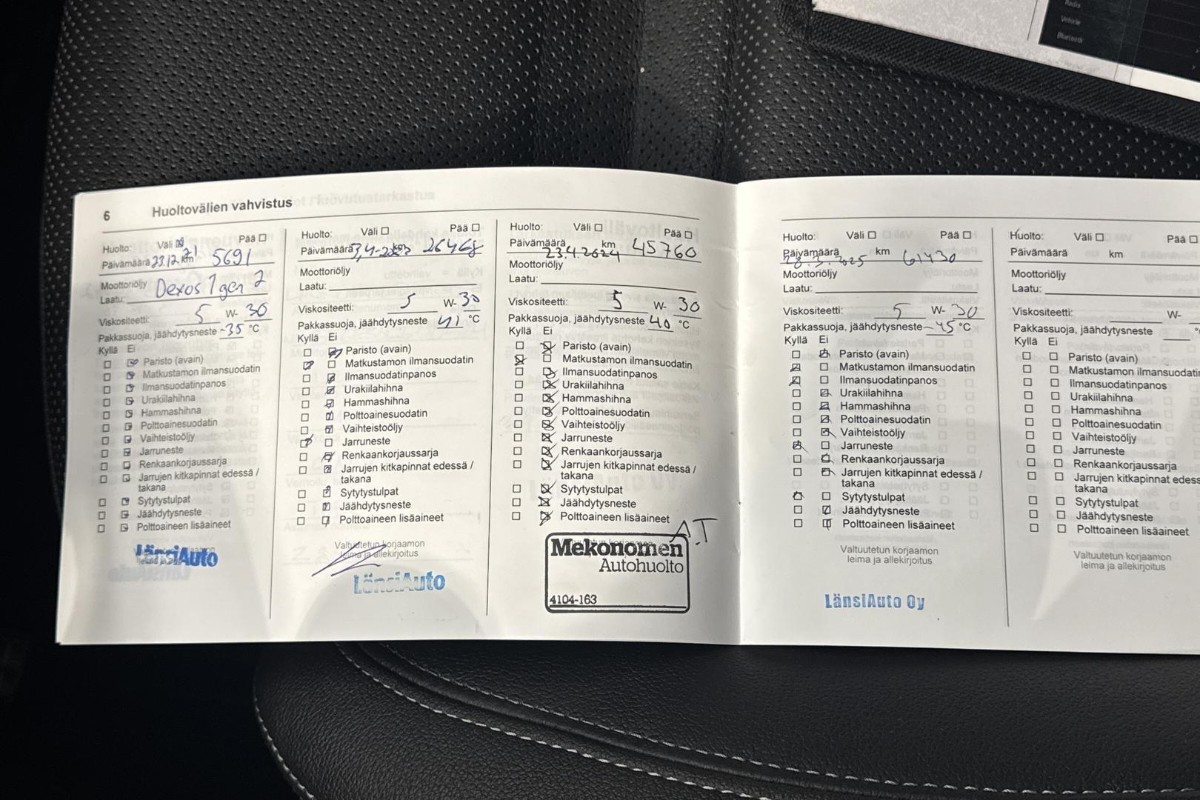 Radio
Vehicle
Bluetooth
6 Huoltovälien vahvistus
Huolto: Väli Pää
Päivämäärä 23.12.21 km 5691
Moottoriöljy
Laatu: Dexos 1 gen 2
Viskositeetti: 5 W- 30
Pakkassuoja, jäähdytysneste -35 °C
Kyllä Ei
Paristo (avain)
Matkustamon ilmansuodatin
Ilmansuodatinpanos
Urakiilahihna
Hammashihna
Polttoainesuodatin
Vaihteistoöljy
Jarruneste
Renkaankorjaussarja
Jarrujen kitkapinnat edessä /
takana
Sytytystulpat
Jäähdytysneste
Polttoaineen lisäaineet
LänsiAuto
Huolto: Väli Pää
Päivämäärä km 26468
Moottoriöljy
Laatu:
Viskositeetti: 5 W- 30
Pakkassuoja, jäähdytysneste 41 °C
Kyllä Ei
Paristo (avain)
Matkustamon ilmansuodatin
Ilmansuodatinpanos
Urakiilahihna
Hammashihna
Polttoainesuodatin
Vaihteistoöljy
Jarruneste
Renkaankorjaussarja
Jarrujen kitkapinnat edessä /
takana
Sytytystulpat
Jäähdytysneste
Polttoaineen lisäaineet
Valtuutetun korjaamon
leima ja allekirjoitus
LänsiAuto
Huolto: Väli Pää
Päivämäärä 23.4.2024 km 45760
Moottoriöljy
Laatu:
Viskositeetti: 5 W- 30
Pakkassuoja, jäähdytysneste 40 °C
Kyllä Ei
Paristo (avain)
Matkustamon ilmansuodatin
Ilmansuodatinpanos
Urakiilahihna
Hammashihna
Polttoainesuodatin
Vaihteistoöljy
Jarruneste
Renkaankorjaussarja
Jarrujen kitkapinnat edessä /
takana
Sytytystulpat
Jäähdytysneste
Polttoaineen lisäaineet
A.T
Mekonomen
Autohuolto
4104-163
Huolto: Väli Pää
Päivämäärä km 61430
Moottoriöljy
Laatu:
Viskositeetti: 5 W- 30
Pakkassuoja, jäähdytysneste -45 °C
Kyllä Ei
Paristo (avain)
Matkustamon ilmansuodatin
Ilmansuodatinpanos
Urakiilahihna
Hammashihna
Polttoainesuodatin
Vaihteistoöljy
Jarruneste
Renkaankorjaussarja
Jarrujen kitkapinnat edessä /
takana
Sytytystulpat
Jäähdytysneste
Polttoaineen lisäaineet
Valtuutetun korjaamon
leima ja allekirjoitus
LänsiAuto Oy
Huolto: Väli Pää
Päivämäärä km
Moottoriöljy
Laatu:
Viskositeetti: W-
Pakkassuoja, jäähdytysneste
Kyllä Ei
Paristo (avain)
Matkustamon ilmansuodatin
Ilmansuodatinpanos
Urakiilahihna
Hammashihna
Polttoainesuodatin
Vaihteistoöljy
Jarruneste
Renkaankorjaussarja
Jarrujen kitkapinnat edessä
takana
Sytytystulpat
Jäähdytysneste
Polttoaineen lisäaineet
Valtuutetun korjaamon
leima ja allekirjoitus